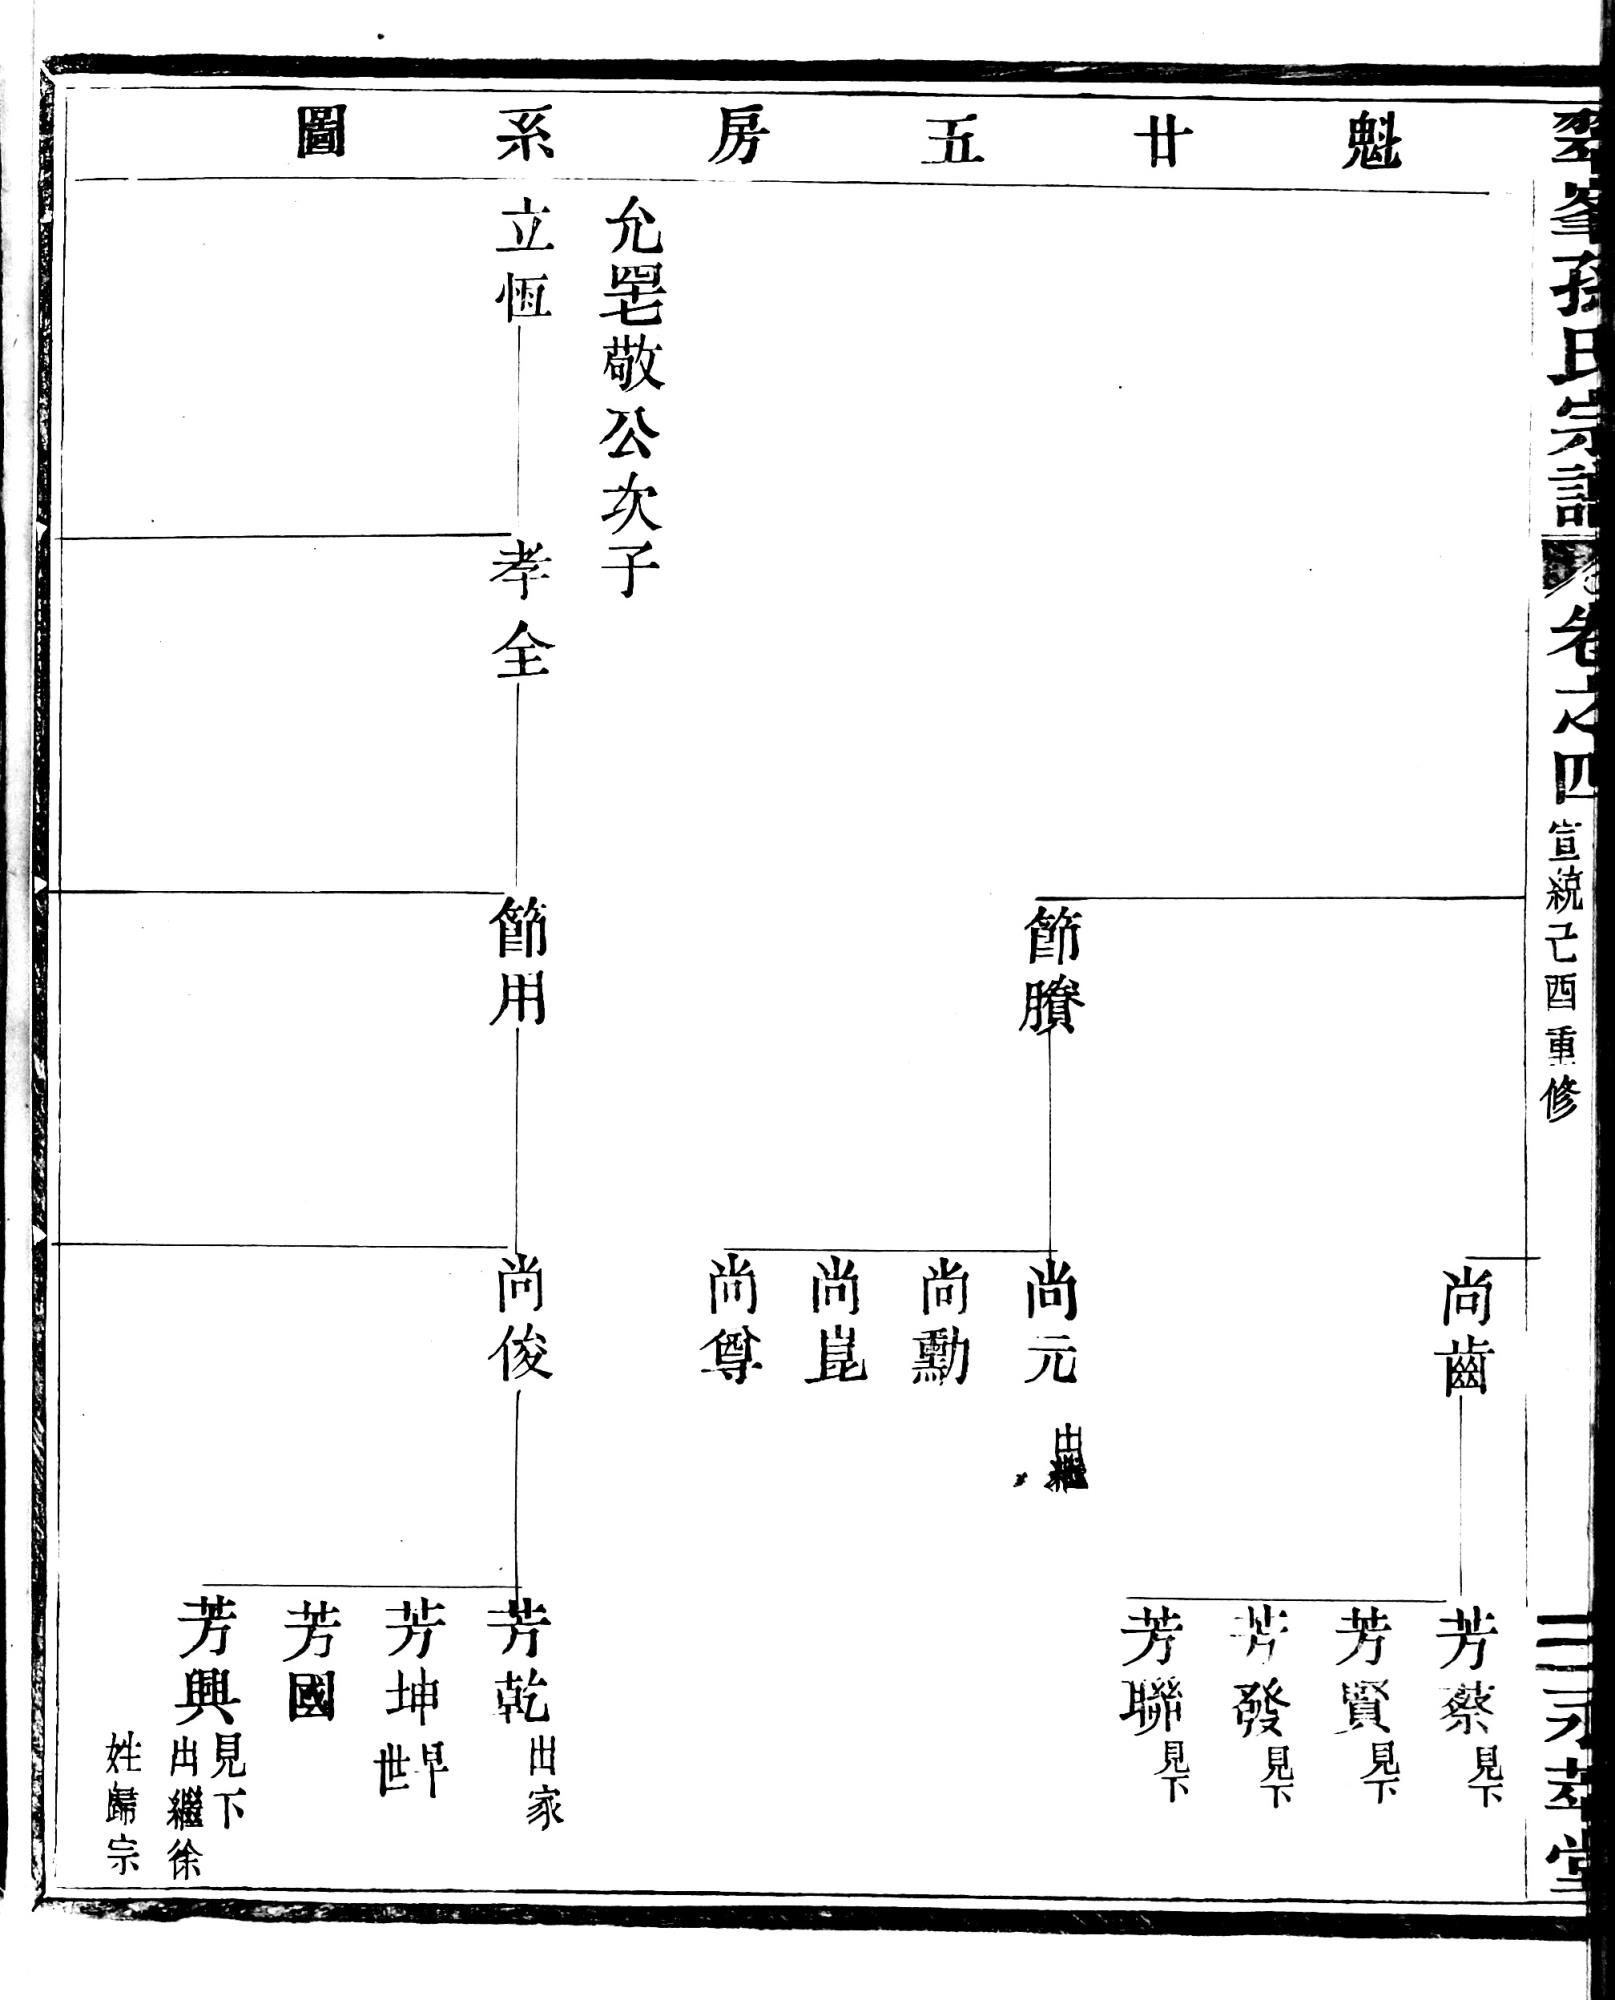 翠峯孫氏宗譜
卷之四
宣統己酉重修
永萃堂
魁廿五房系圖
尚齒
芳蔡見下
芳賢見下
芳發見下
芳聯見下
節賸
尚元出繼
尚勳
尚崑
尚尊
允 敬公次子
立恆
孝全
節用
尚俊
芳乾出家
芳坤早世
芳國
芳興見下
出繼徐
姓歸宗